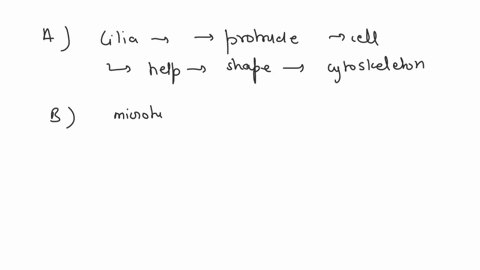 A) Cilia → → protrude → cell
↳ help → shape → cytoskeleton
B) microtu